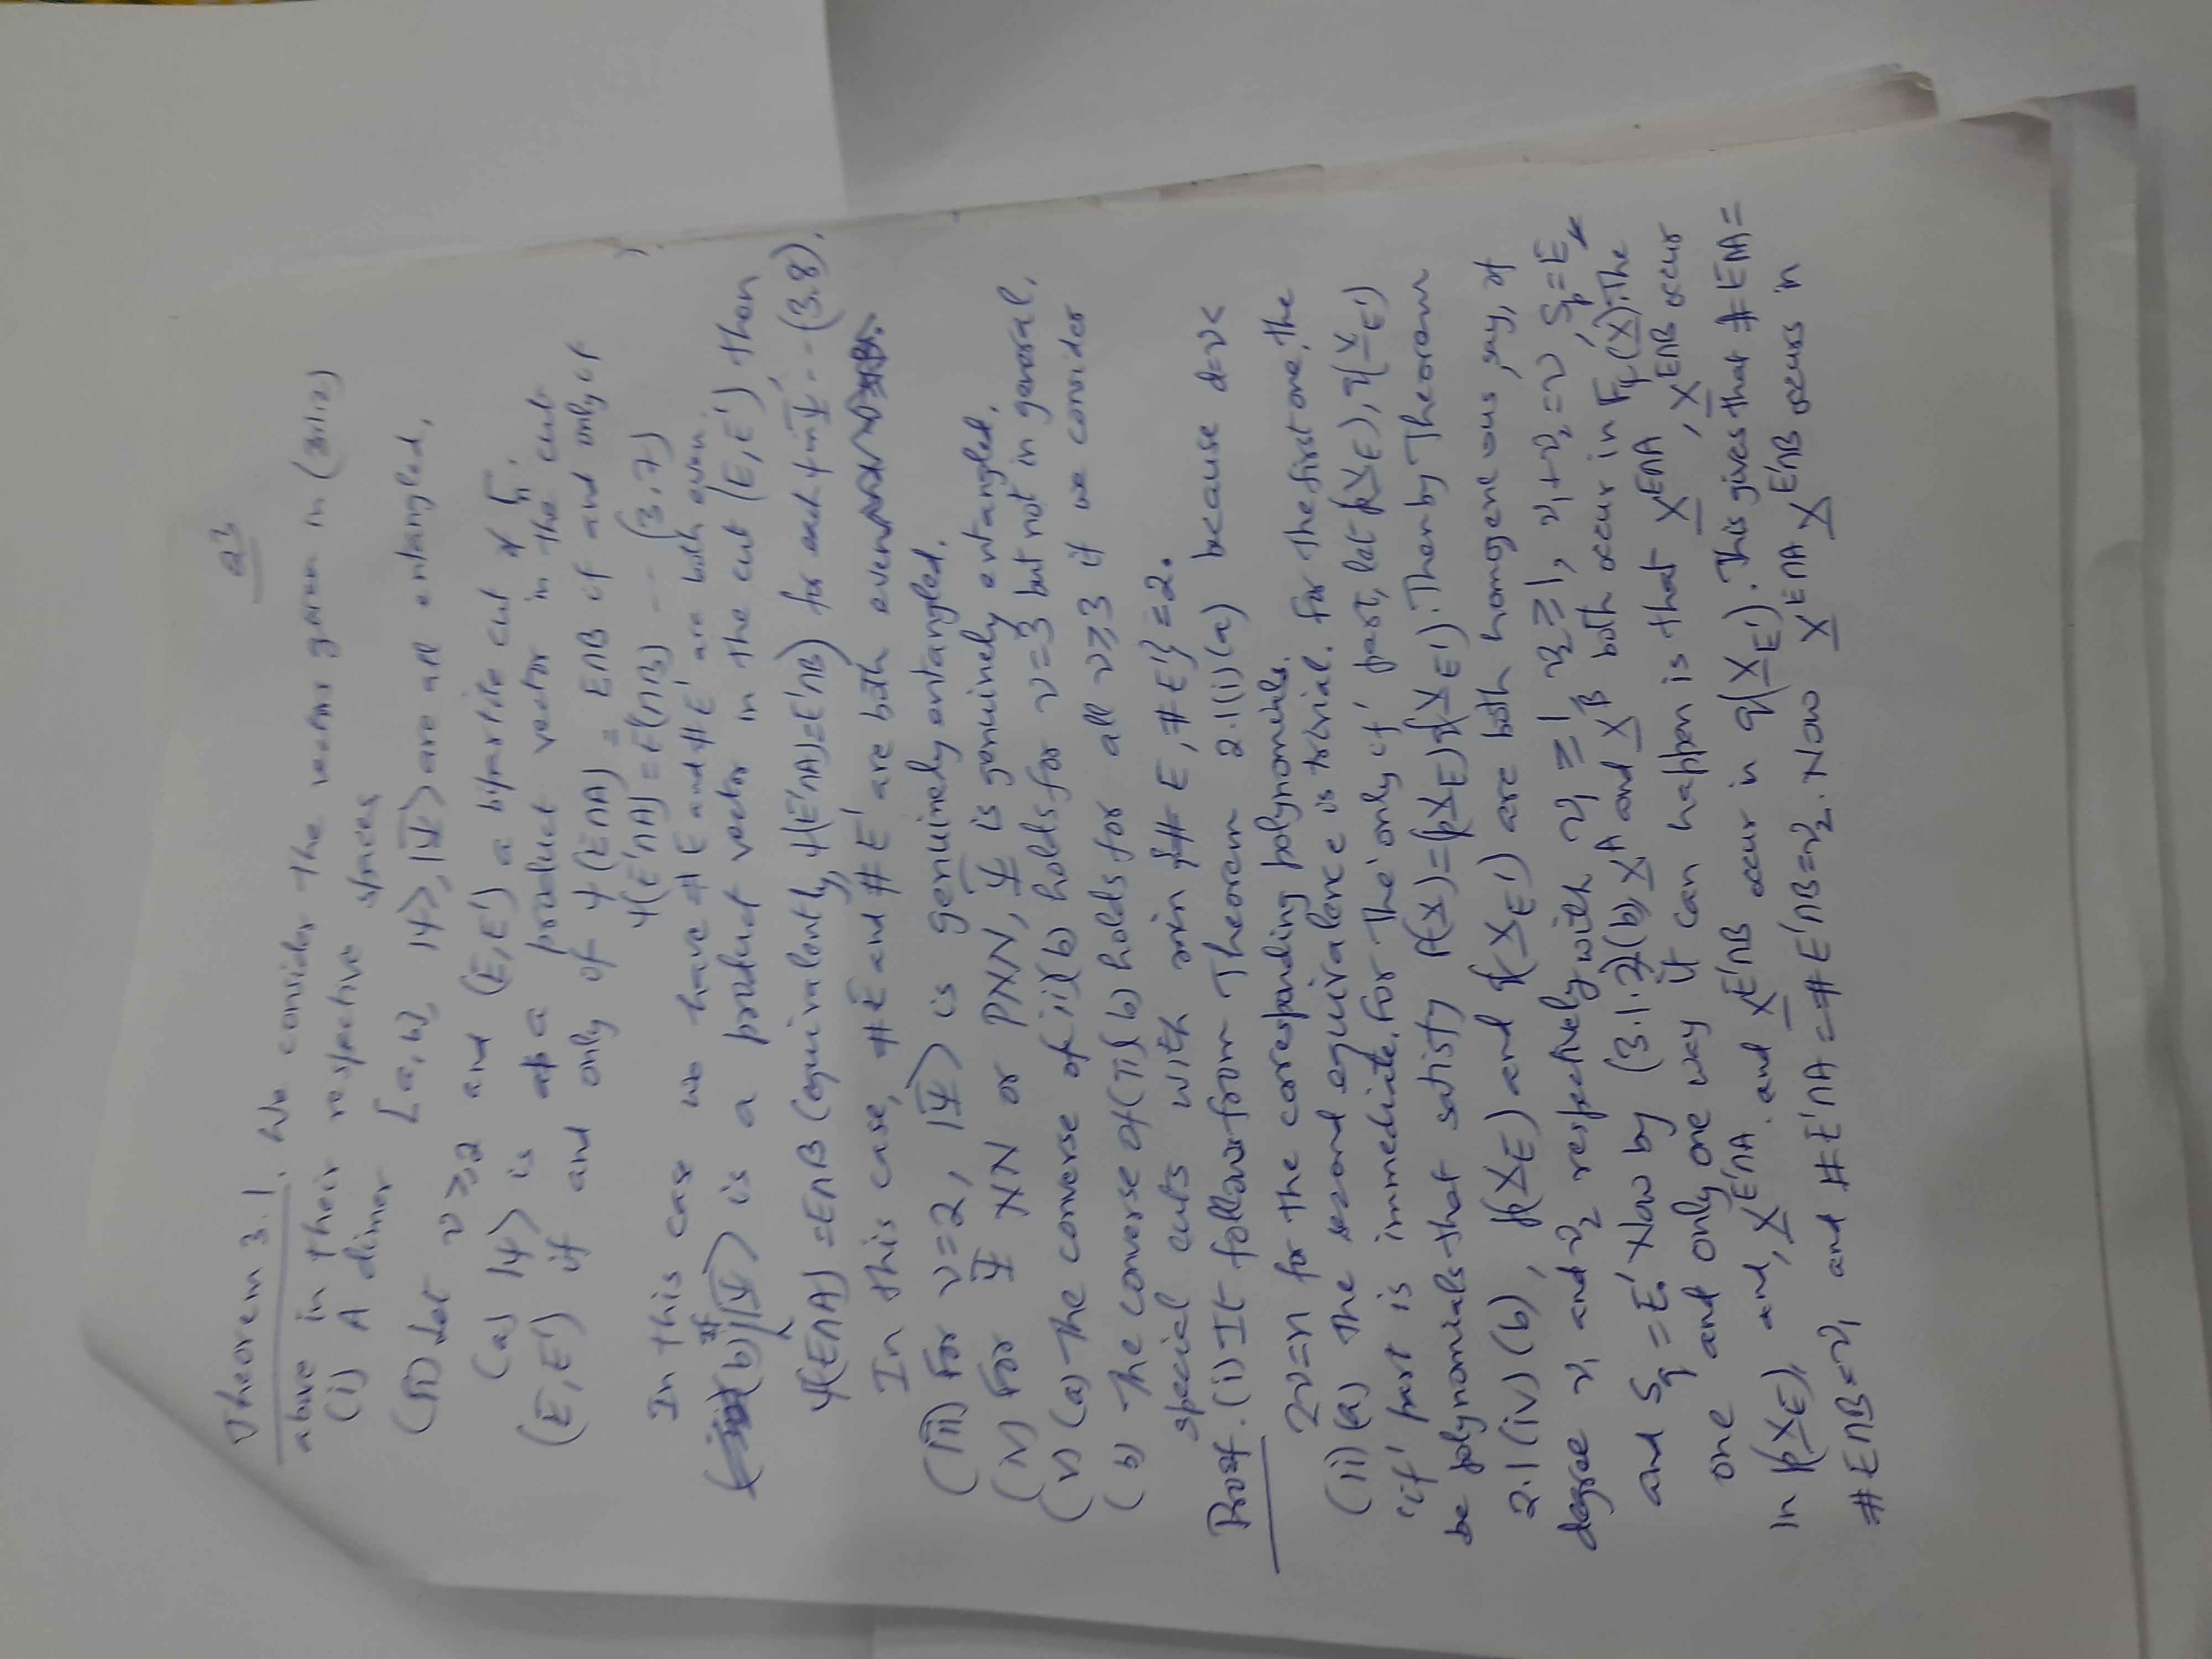 Theorem 3.1. We consider the vectors given in (3.1.2)
above in their respective spaces
(i) A dimer [a,b], |ψ>, |Ψ> are all entangled,
(ii) Let ν ⩾ 2 and (E,E') a bipartite cut of Γn.
(a) |ψ> is a product vector in the cut
(E,E') if and only if ψ(E∩A) = E∩B if and only if
ψ(E'∩A) = E'∩B) -- (3.7)
In this case we have # E and # E' are both even.
(b) If |Ψ> is a product vector in the cut (E,E'), then
ψ(E∩A) = E∩B (equivalently, ψ(E'∩A)=E'∩B) for each ψ in Ψ -- (3.8).
In this case, # E and # E' are both even
(iii) For ν=2, |Ψ> is genuinely entangled.
(iv) For Ψ NN or PNN, Ψ is genuinely entangled.
(v) (a) The converse of ii)(b) holds for ν=3 but not in general.
(b) The converse of (ii)(b) holds for all ν⩾3 if we consider
special cuts with min {# E, # E'} = 2.
Proof. (i) It follows from Theorem 2.1(i)(a) because d=ν<
2ν=n for the corresponding polynomials.
(ii) (a) The second equivalence is trivial. For the first one, the
'if' part is immediate. For the 'only if' part, let p(X_E), q(X_E')
be polynomials that satisfy F(X)=p(X_E)q(X_E'). Then by Theorem
2.1(iv)(b), p(X_E) and q(X_E') are both homogeneous, say, of
degree ν₁ and ν₂ respectively with ν₁ ≥ 1, ν₂ ≥ 1, ν₁+ν₂=ν, S_p=E,
and S_q = E'. Now by (3.1.2)(b), X^A and X^B both occur in F_ψ(X). The
one and only one way it can happen is that X^{E∩A}, X^{E∩B} occur
in p(X_E), and, X^{E'∩A} and X^{E'∩B} occur in q(X_E'). This gives that # E∩A =
# E∩B = ν₁ and # E'∩A = # E'∩B = ν₂. Now X^{E∩A} X^{E'∩B} occurs in